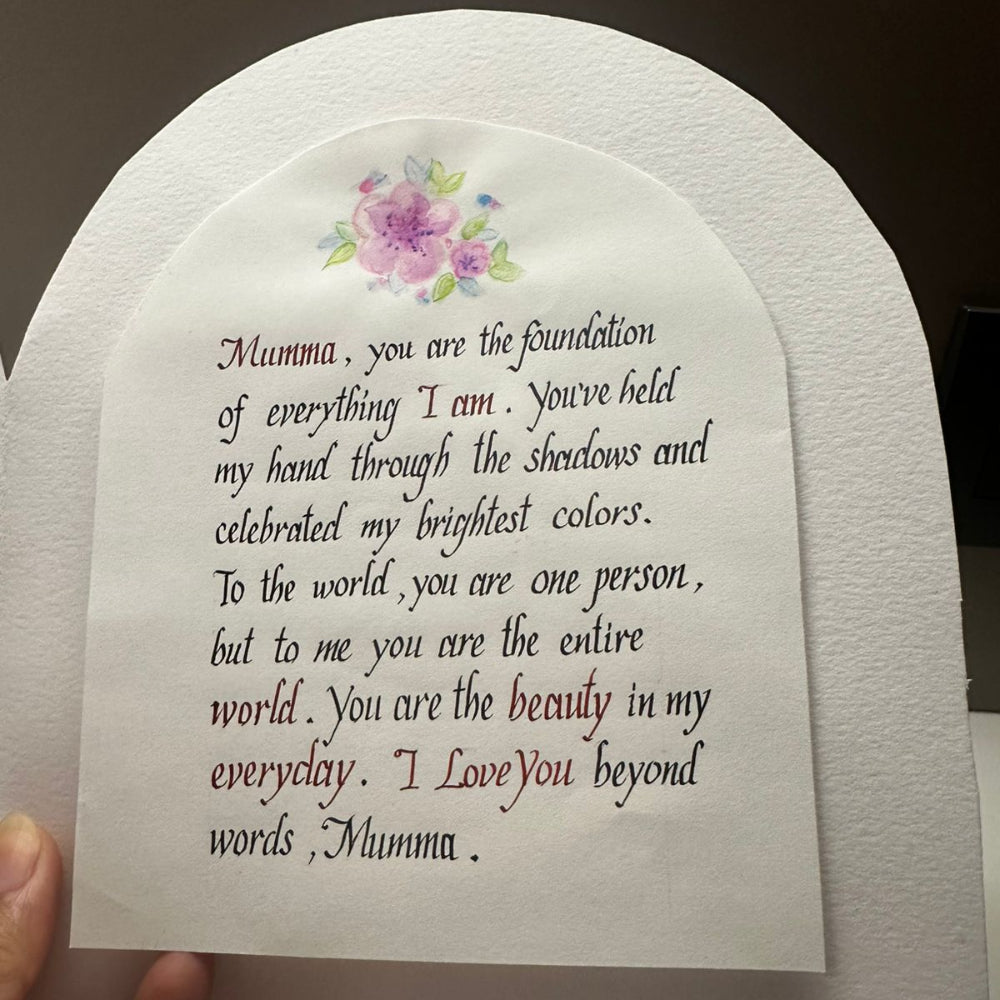 Mumma, you are the foundation
of everything I am. You've held
my hand through the shadows and
celebrated my brightest colors.
To the world, you are one person,
but to me you are the entire
world. You are the beauty in my
everyday. I Love You beyond
words, Mumma.